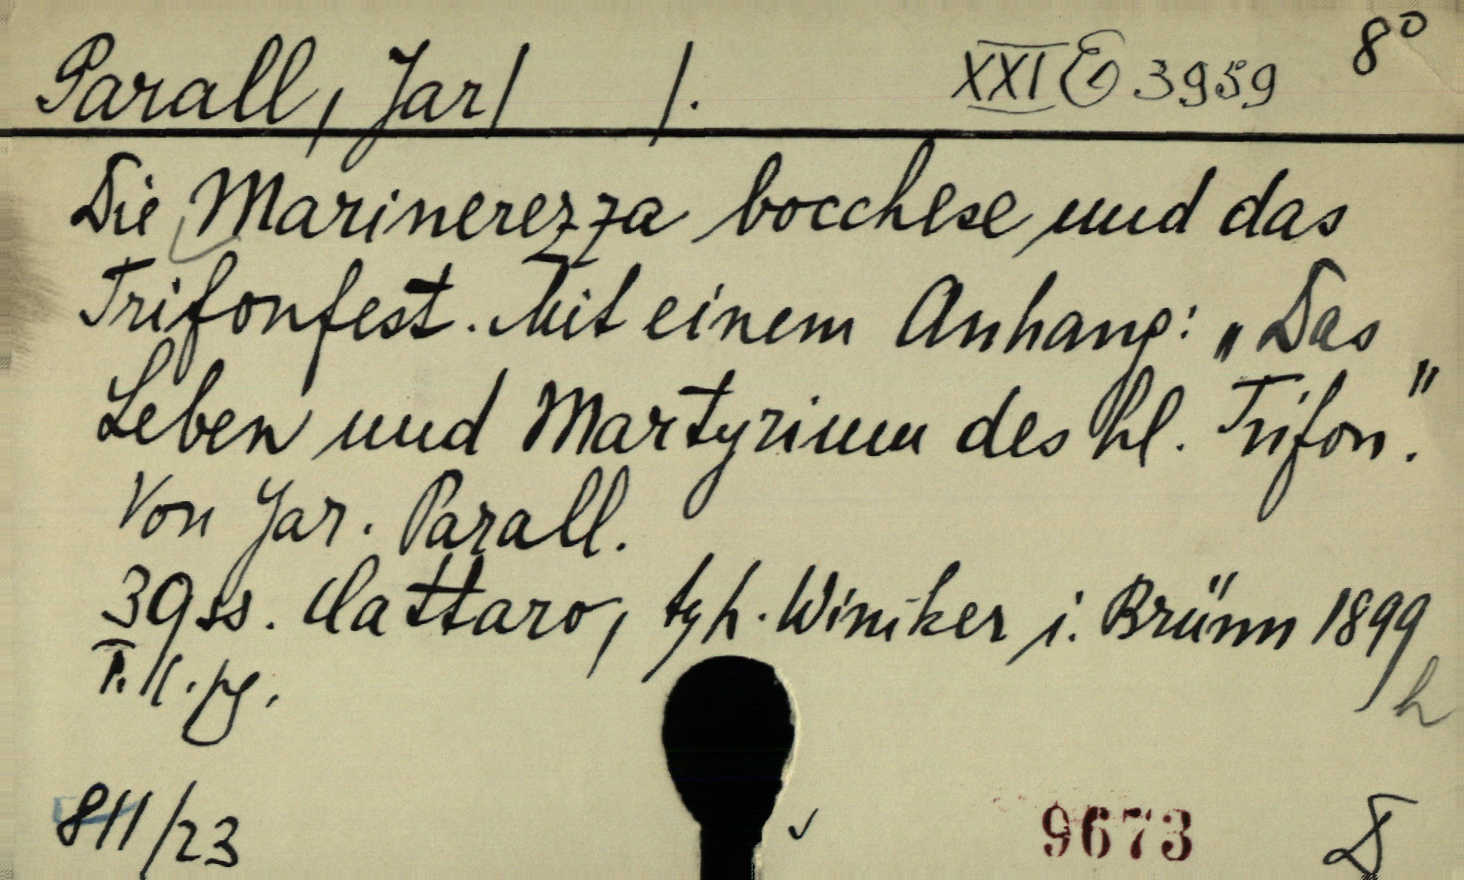 Parall, Jar/ /. XXI E 3959 8°
Die Marinerezza bocchese und das
Trifonfest. Mit einem Anhang: „Das
Leben und Martyrium des hl. Trifon."
Von Jar. Parall.
39 ss. Cattaro, typ. Winiker i. Brünn 1899
h
811/23 9673 D